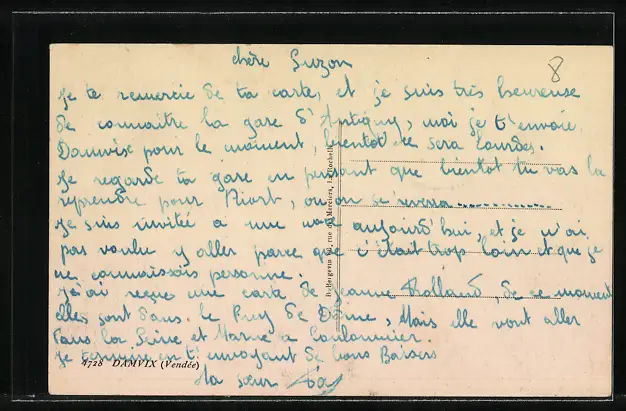 chère Suzon
Je te remercie de ta carte, et je suis très heureuse
de connaitre la gare d'Antigny, moi je t'envoie
Damvix pour le moment, bientot ce sera Lourdes.
Je regarde ta gare en pensant que bientot tu vas la
reprendre pour Niort, ou on se reverra............
Je suis invitée a une noce aujourd'hui, et je n'ai
pas voulu y aller parce que c'était trop loin et que je
ne connaissais personne.
J'ai reçue une carte de Jeanne Rolland, de ce moment
elles sont dans le Puy de Dôme, Mais elle vont aller
dans la Seine et Marne a Coulommier.
Je termine en t'envoyant de bons Baisers
Ta sœur
8
4728 DAMVIX (Vendée)
D. Bergevin, rue des Merciers, La Rochelle